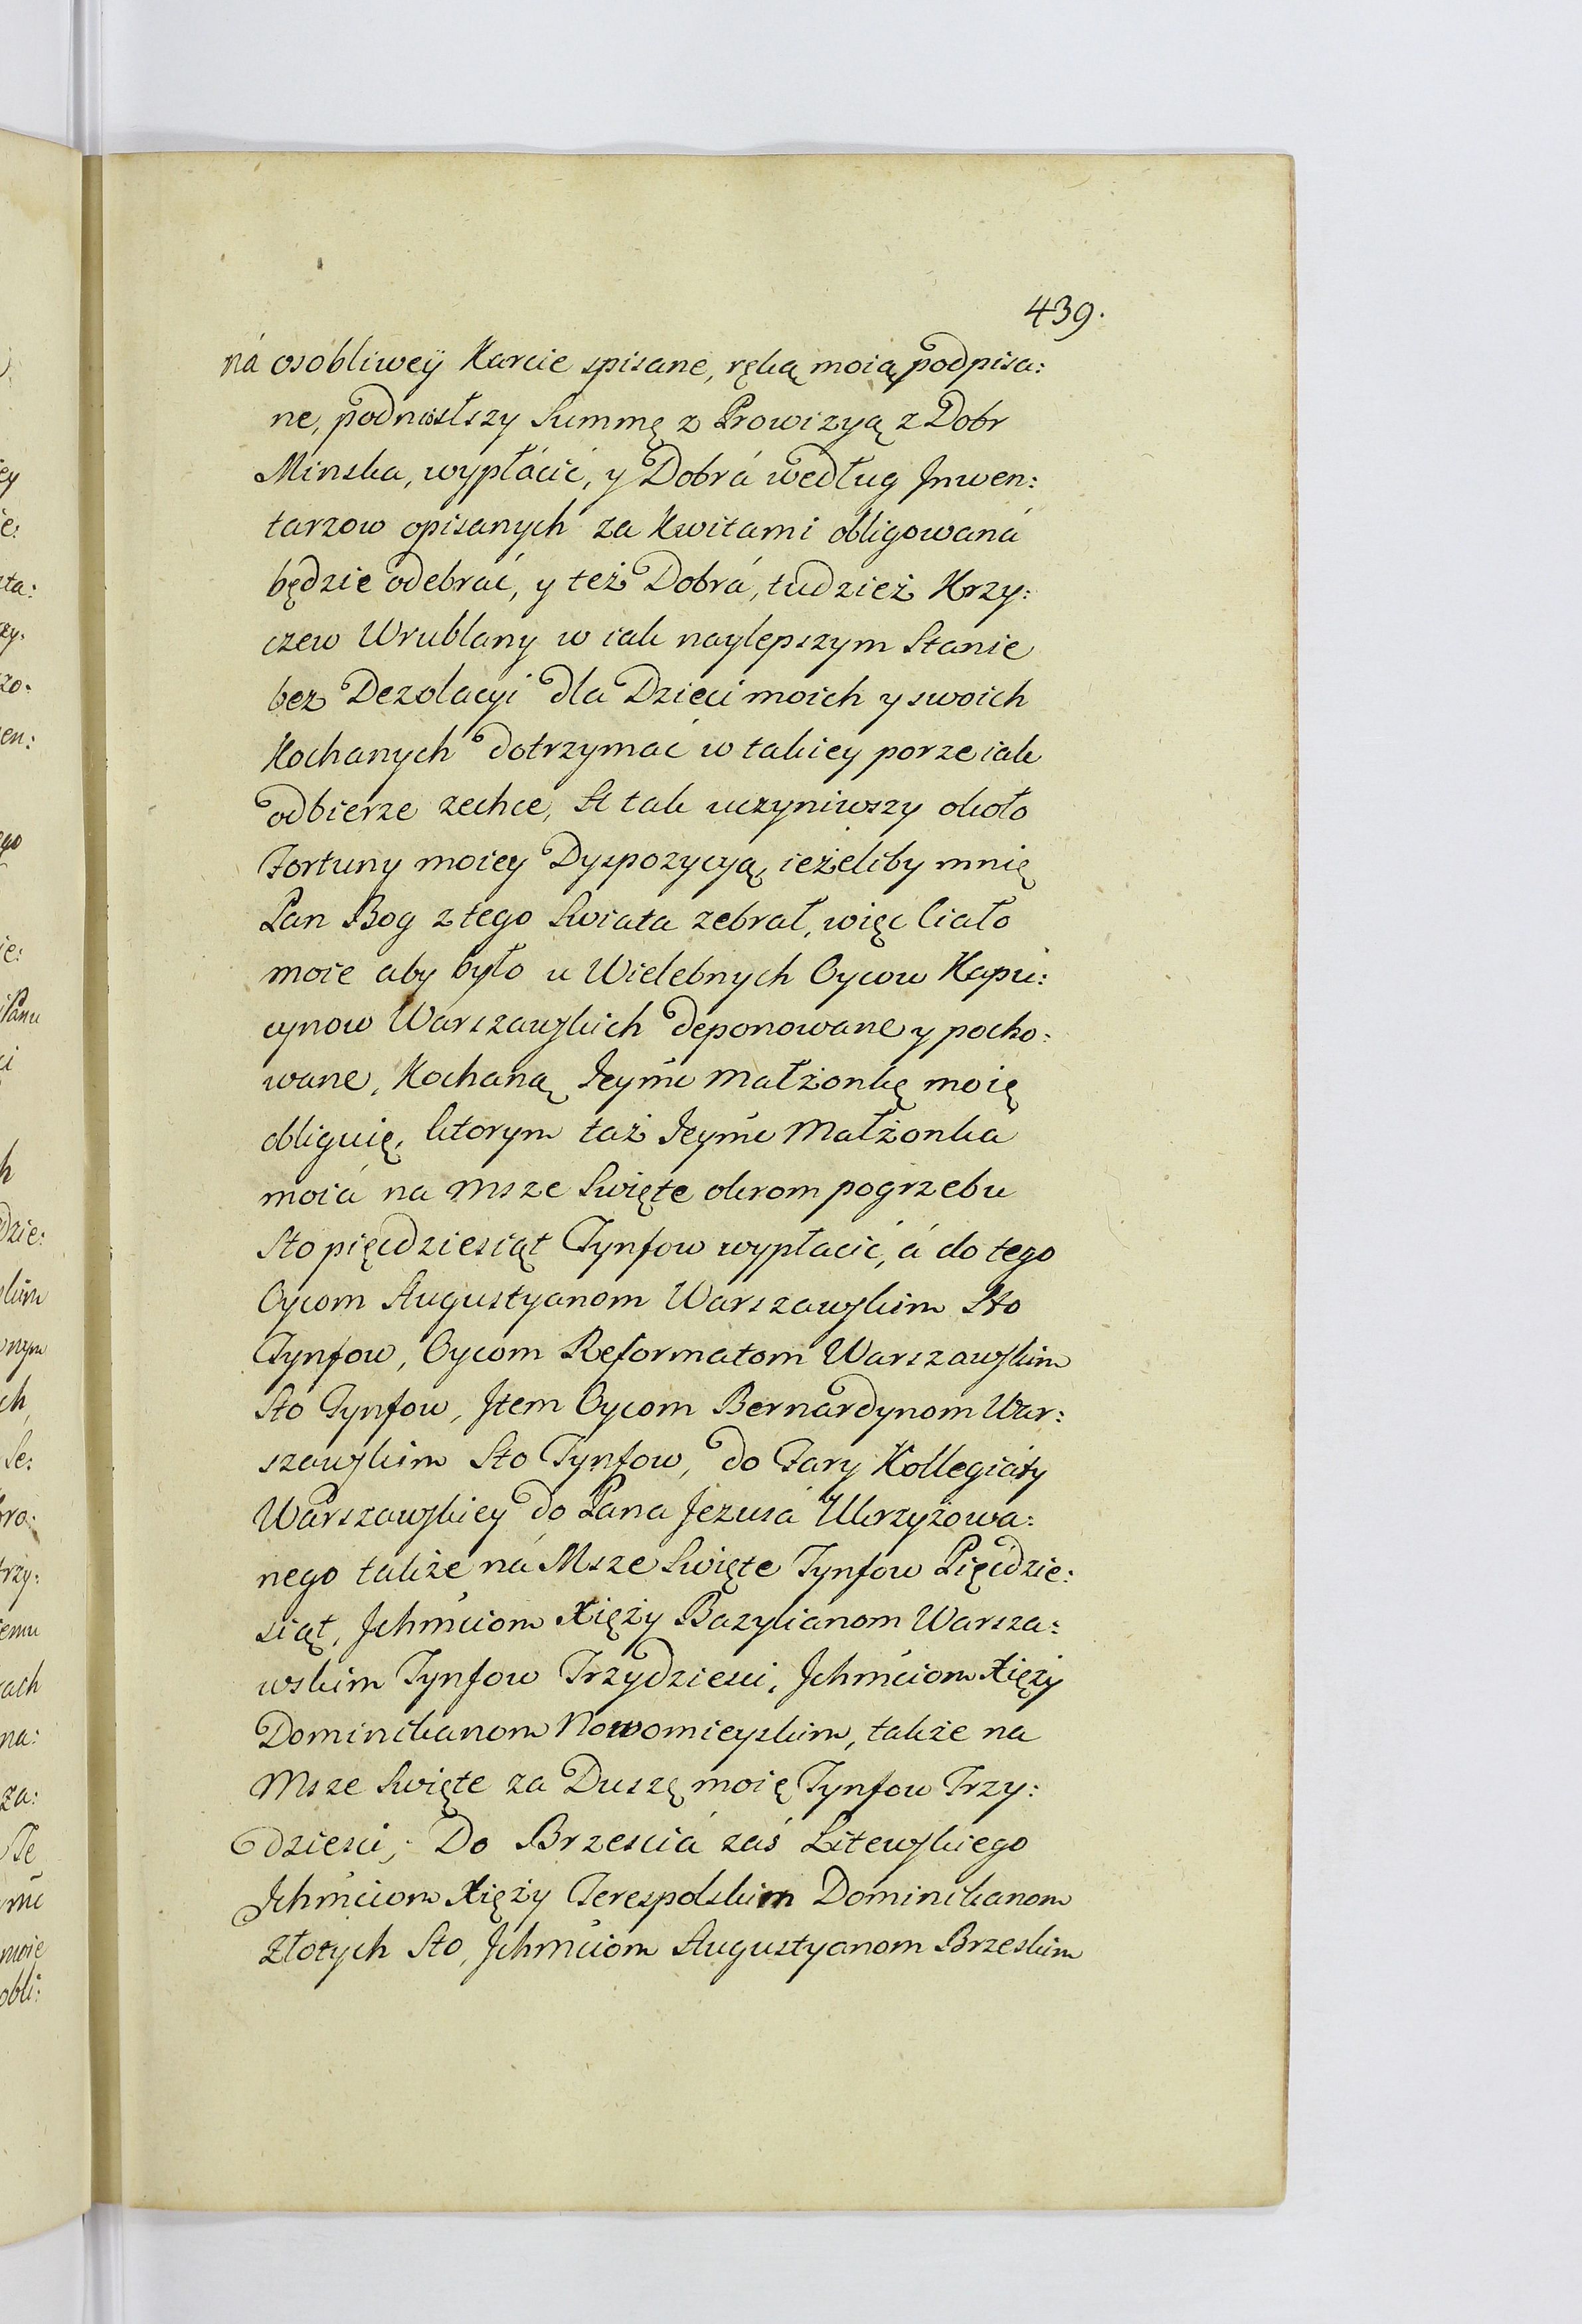 439.
ná osobliwey Karcie spisane, ręką moią podpisa:
ne, podniosłszy Summę z Prowizyą z Dobr
Minska, wypłácić, y Dobrá według Jnwen:
tarzow opisanych za Kwitami obligowaná
będzie odebrać, y też Dobrá, tudzież Krzy:
czew Wrublany w iak naylepszym Stanie
bez Dezolacyi dla Dzieci moich y swoich
Kochanych dotrzymać w takiey porze iak
odbierze zechce, A tak uczyniwszy około
Fortuny moiey Dyspozycyą, ieżeliby mnię
Pan Bog z tego Swiata zebrał, więc Ciało
moie aby było u Wielebnych Oycow Kapu:
cynow Warszawskich deponowane y pocho:
wane, Kochaną Jeymć Małżonkę moię
obliguię, ktorym taż Jeymć Małżonka
moiá na Msze Swięte okrom pogrzebu
Sto pięcdziesiąt Tynfow wypłacić, á do tego
Oycom Augustyanom Warszawskim Sto
Tynfow, Oycom Reformatom Warszawskim
Sto Tynfow, Jtem Oycom Bernardynom War:
szawskim Sto Tynfow, do Fary Kollegiaty
Warszawskiey do Pana Jezusá Ukrzyżowa:
nego także ná Msze Swięte Tynfow Pięcdzie:
siąt, Jchmciom Xięży Bazylianom Warsza:
wskim Tynfow Trzydziesci, Jchmciom Xięży
Dominikanom Nowomieyskim, także na
Msze Swięte za Duszę moię Tynfow Trzy:
dziesci, Do Brzesciá zaś Litewskiego
Jchmciom Xięży Terespolskim Dominikanom
Złotych Sto, Jchmciom Augustyanom Brzeskim